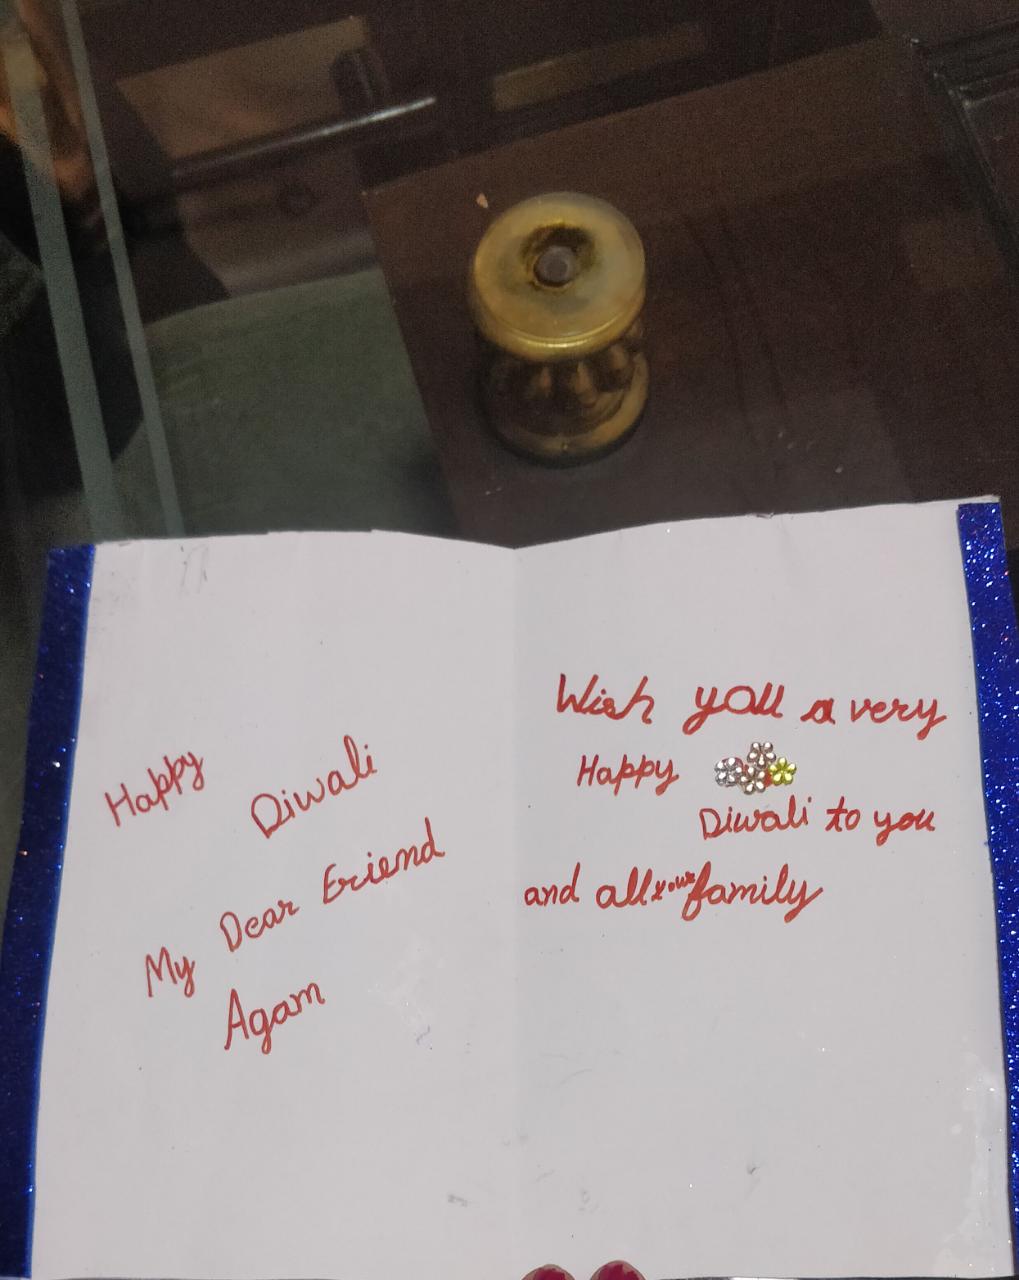 Happy Diwali
My Dear Friend
Agam
Wish you a very
Happy
Diwali to you
and all your family